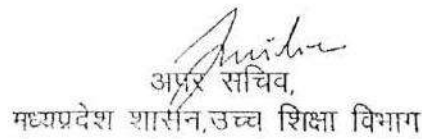 अपर सचिव,
मध्यप्रदेश शासन,उच्च शिक्षा विभाग